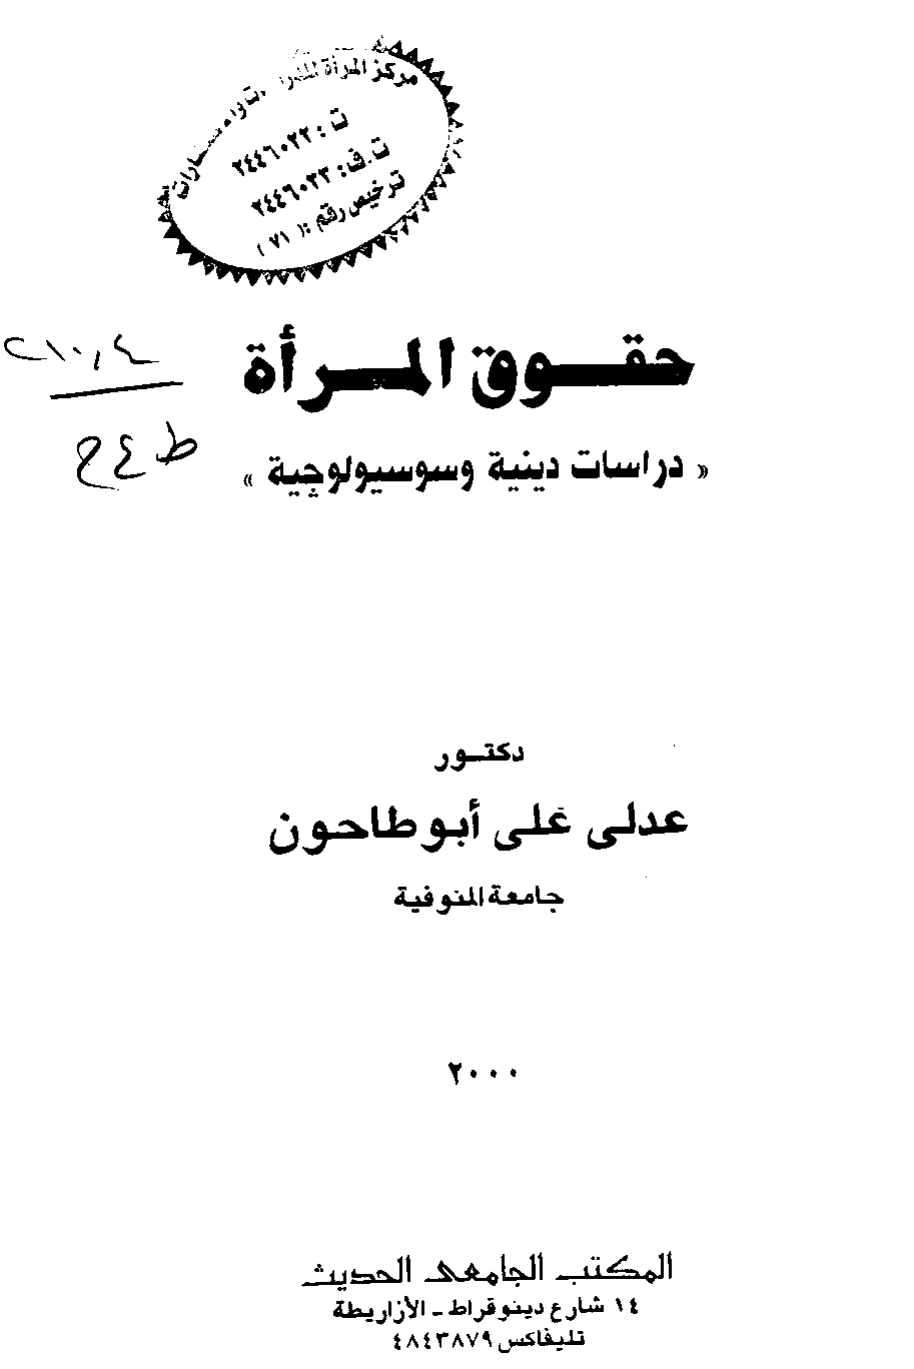 مركز المرأة
ت : ٢٤٤٦٠٢٣
ت.ف: ٢٤٤٦٠٢٣
ترخيص رقم :( ٧١ )
حقوق المرأة
« دراسات دينية وسوسيولوچية »
٢١٠,٤
ط ع ح
دكتور
عدلى على أبو طاحون
جامعة المنوفية
٢٠٠٠
المكتب الجامعى الحديث
١٤ شارع دينوقراط ـ الأزاريطة
تليفاكس ٤٨٤٣٨٧٩